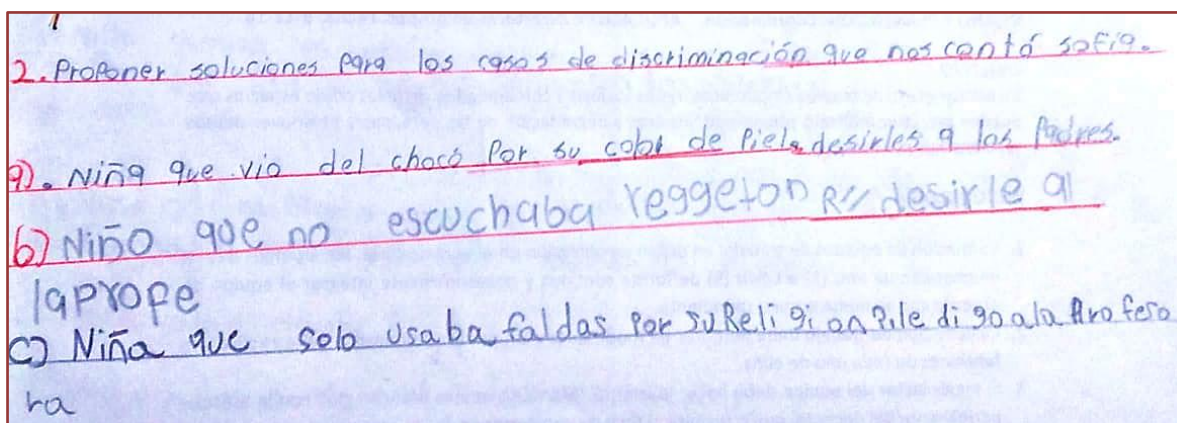 2. Proponer soluciones para los casos de discriminación que nos contó sofia.
a). Niña que vio del chocó por su color de piel. desirles a los Padres.
b) Niño que no escuchaba reggeton R// desirle a
la profe
c) Niña que solo usaba faldas por su Religion R. le digo a la profeso
ra